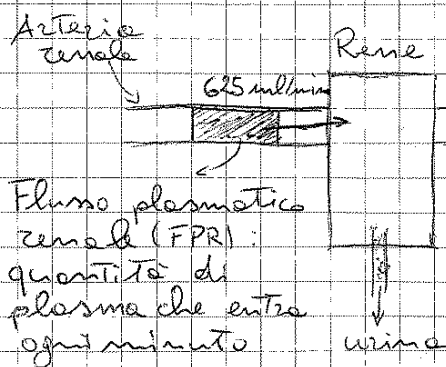 Arteria
renale
Rene
625 ml/min
Flusso plasmatico
renale (FPR):
quantità di
plasma che entra
ogni minuto
urina